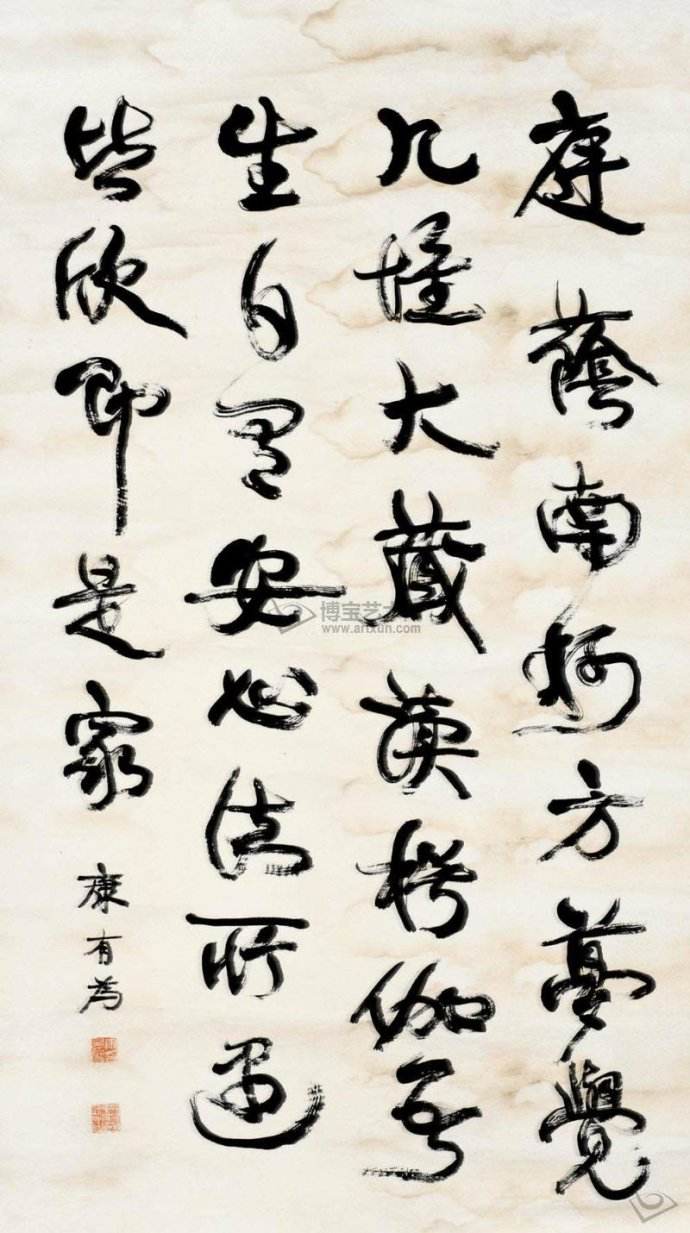 庭蔭南柯方夢覺
几堆大藏讀楞伽吾
生自有安心法所遇
皆欣即是家
康有為
博宝艺
www.artxun.com